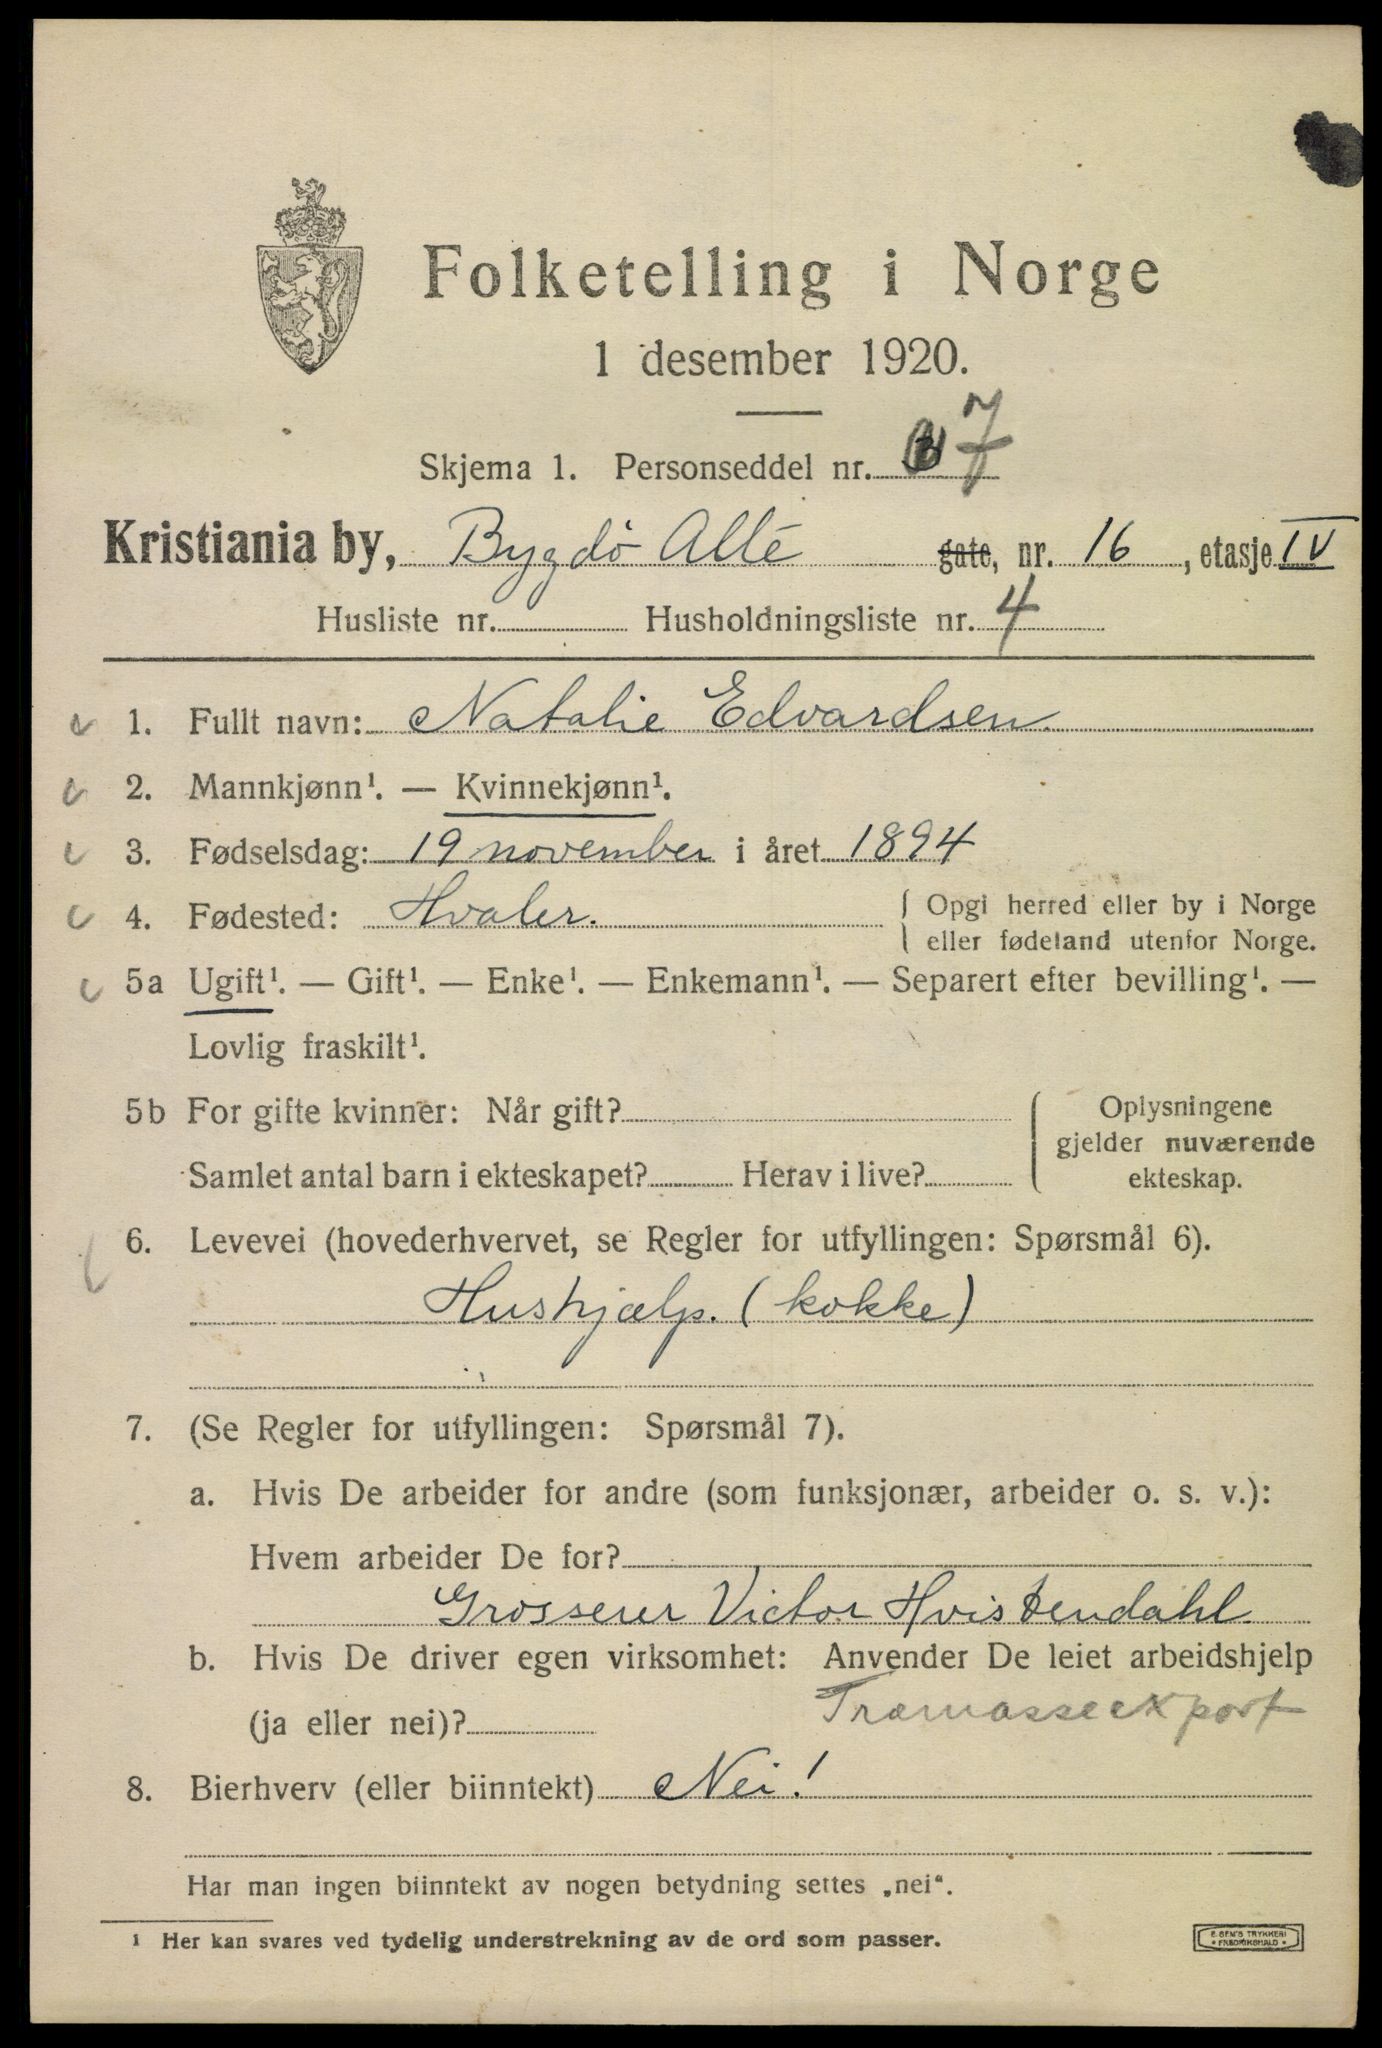 Folketelling i Norge
1 desember 1920.
Skjema 1. Personseddel nr. 7
Kristiania by, Bygdö Allé gate, nr. 16, etasje IV
Husliste nr. Husholdningsliste nr. 4
1. Fullt navn: Natalie Edvardsen
2. Mannkjønn¹. — Kvinnekjønn¹.
3. Fødselsdag: 19 november i året 1894
4. Fødested: Hvaler.
{ Opgi herred eller by i Norge
eller fødeland utenfor Norge.
5a Ugift¹. — Gift¹. — Enke¹. — Enkemann¹. — Separert efter bevilling¹. —
Lovlig fraskilt¹.
5b For gifte kvinner: Når gift?
Samlet antal barn i ekteskapet? Herav i live?
{ Oplysningene
gjelder nuværende
ekteskap.
6. Levevei (hovederhvervet, se Regler for utfyllingen: Spørsmål 6).
Hushjælp. (kokke)
7. (Se Regler for utfyllingen: Spørsmål 7).
a. Hvis De arbeider for andre (som funksjonær, arbeider o. s. v.):
Hvem arbeider De for?
Grosserer Victor Hvistendahl
b. Hvis De driver egen virksomhet: Anvender De leiet arbeidshjelp
(ja eller nei)? Træmasseexport
8. Bierhverv (eller biinntekt) Nei!
Har man ingen biinntekt av nogen betydning settes „nei“.
¹ Her kan svares ved tydelig understrekning av de ord som passer.
E. SEM'S TRYKKERI
• FREDRIKSHALD •